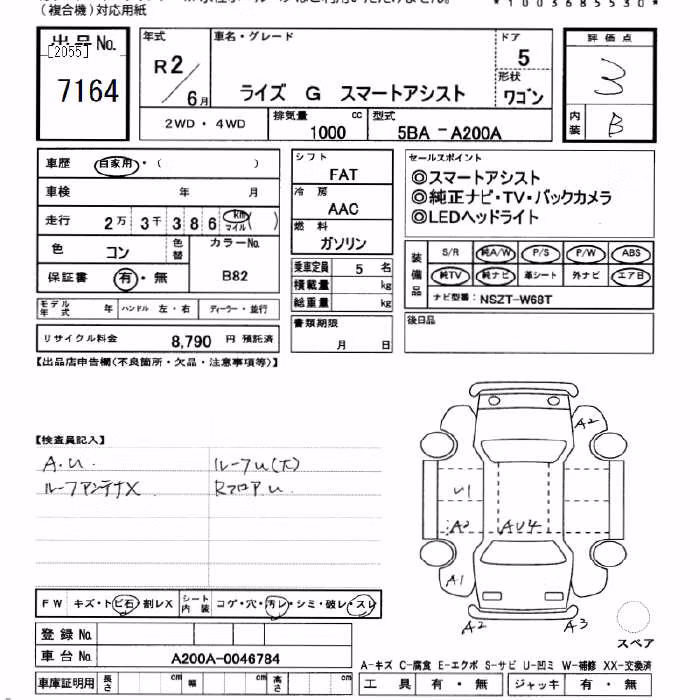 （複合機）対応用紙
*1003685530*
出品No.
[2055]
7164
年式
R2/6月
車名・グレード
ライズ G スマートアシスト
ドア
5
形状
ワゴン
2WD・4WD
排気量
1000 cc
型式
5BA－A200A
評価点
3
内装
B
車歴 自家用・( )
車検 年 月
走行 2万3千386 km マイル( )
色 コン
色替
カラーNo.
B82
保証書 有・無
モデル年式 年 ハンドル 左・右 ディーラー・並行
リサイクル料金 8,790 円 預託済
シフト
FAT
冷房
AAC
燃料
ガソリン
乗車定員 5 名
積載量 kg
総重量 kg
書類期限
月 日
セールスポイント
◎スマートアシスト
◎純正ナビ・TV・バックカメラ
◎LEDヘッドライト
装備品
S/R 純A/W P/S P/W ABS
純TV 純ナビ 革シート 外ナビ エアB
ナビ型番： NSZT-W68T
後日品
【出品店申告欄(不良箇所・欠品・注意事項等)】
【検査員記入】
A.U ルーフU(大)
ルーフアンテナX RフロアU
A2
U1
A2 AU4
A1
A2 A3
スペア
FW キズ・トビ石・割レX
シート内装 コゲ・穴・汚レ・シミ・破レ・スレ
登録No.
車台No. A200A-0046784
車庫証明用 長さ cm 幅 cm 高さ cm
A－キズ C－腐食 E－エクボ S－サビ U－凹ミ W－補修 XX－交換済
工具 有・無 ジャッキ 有・無